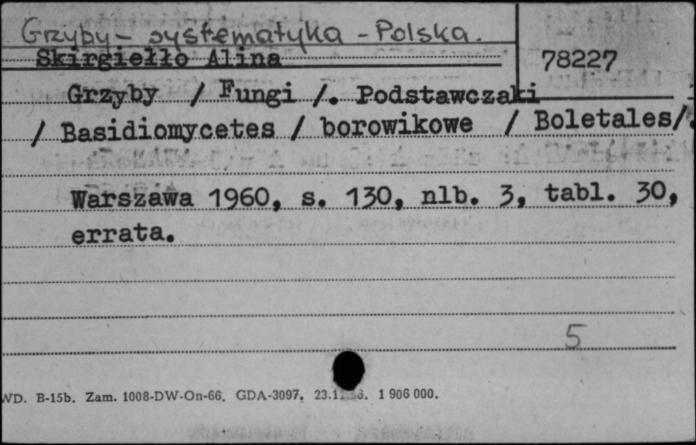 Grzyby - systematyka - Polska.
Skirgiełło Alina
78227
Grzyby / Fungi /. Podstawczaki
/ Basidiomycetes / borowikowe / Boletales/.
Warszawa 1960, s. 130, nlb. 3, tabl. 30,
errata.
5
WD. B-15b. Zam. 1008-DW-On-66. GDA-3097. 1 906 000.